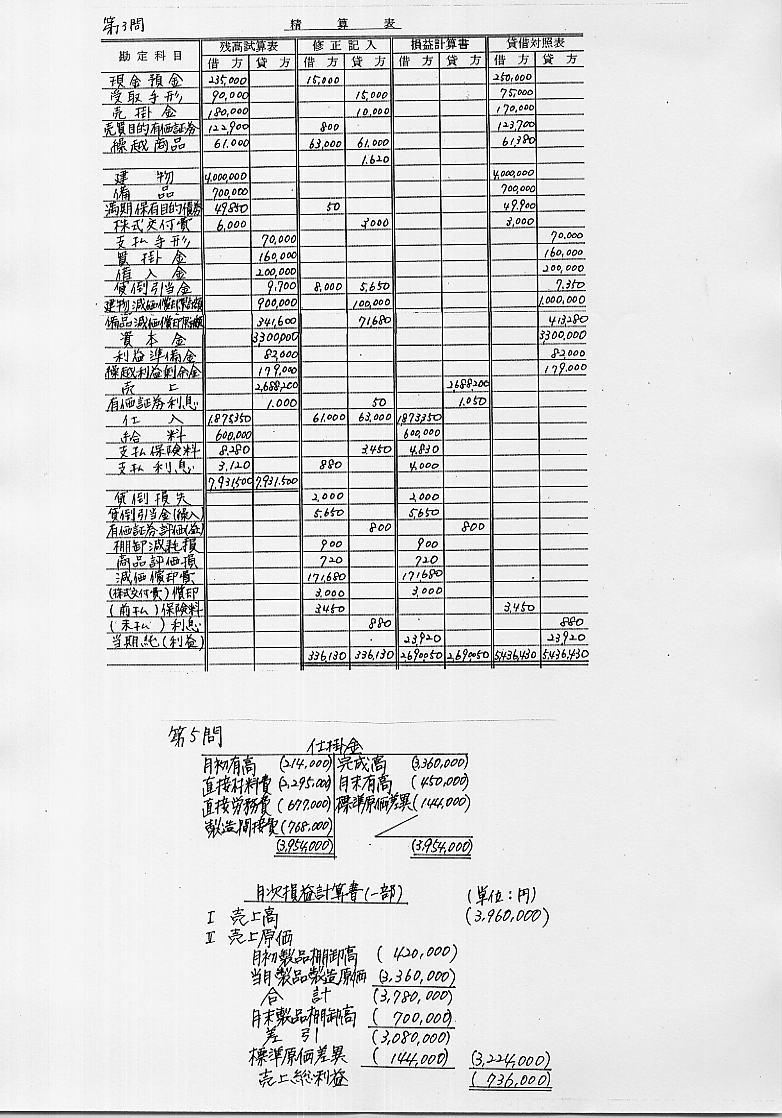 第3問 精算表
勘定科目 残高試算表 修正記入 損益計算書 貸借対照表
借方 貸方 借方 貸方 借方 貸方 借方 貸方
現金預金 235,000 15,000 250,000
受取手形 90,000 15,000 75,000
売掛金 180,000 10,000 170,000
売買目的有価証券 122,900 800 123,700
繰越商品 61,000 63,000 61,000 61,380
1,620
建物 4,000,000 4,000,000
備品 700,000 700,000
満期保有目的債券 49,850 50 49,900
株式交付費 6,000 3,000 3,000
支払手形 70,000 70,000
買掛金 160,000 160,000
借入金 200,000 200,000
貸倒引当金 9,700 8,000 5,650 7,350
建物減価償却累計額 900,000 100,000 1,000,000
備品減価償却累計額 341,600 71,680 413,280
資本金 3,300,000 3300,000
利益準備金 82,000 82,000
繰越利益剰余金 179,000 179,000
売上 2,688,200 2688200
有価証券利息 1,000 50 1,050
仕入 1,875,350 61,000 63,000 1,873,350
給料 600,000 600,000
支払保険料 8,280 3,450 4,830
支払利息 3,120 880 4,000
7,931,500 7,931,500
貸倒損失 2,000 2,000
貸倒引当金(繰入) 5,650 5,650
有価証券評価(益) 800 800
棚卸減耗損 900 900
商品評価損 720 720
減価償却費 171,680 171,680
(株式交付費)償却 3,000 3,000
(前払)保険料 3,450 3,450
(未払)利息 880 880
当期純(利益) 23,920 23,920
336,130 336,130 2,690,050 2,690,050 5,436,430 5,436,430
第5問
仕掛金
月初有高 (214,000) 完成高 (3,360,000)
直接材料費 (2,295,000) 月末有高 (450,000)
直接労務費 (677,000) 標準原価差異 (144,000)
製造間接費 (768,000)
(3,954,000) (3,954,000)
月次損益計算書(一部) (単位:円)
Ⅰ 売上高 (3,960,000)
Ⅱ 売上原価
月初製品棚卸高 (420,000)
当月製品製造原価 (3,360,000)
合計 (3,780,000)
月末製品棚卸高 (700,000)
差引 (3,080,000)
標準原価差異 (144,000) (3,224,000)
売上総利益 (736,000)